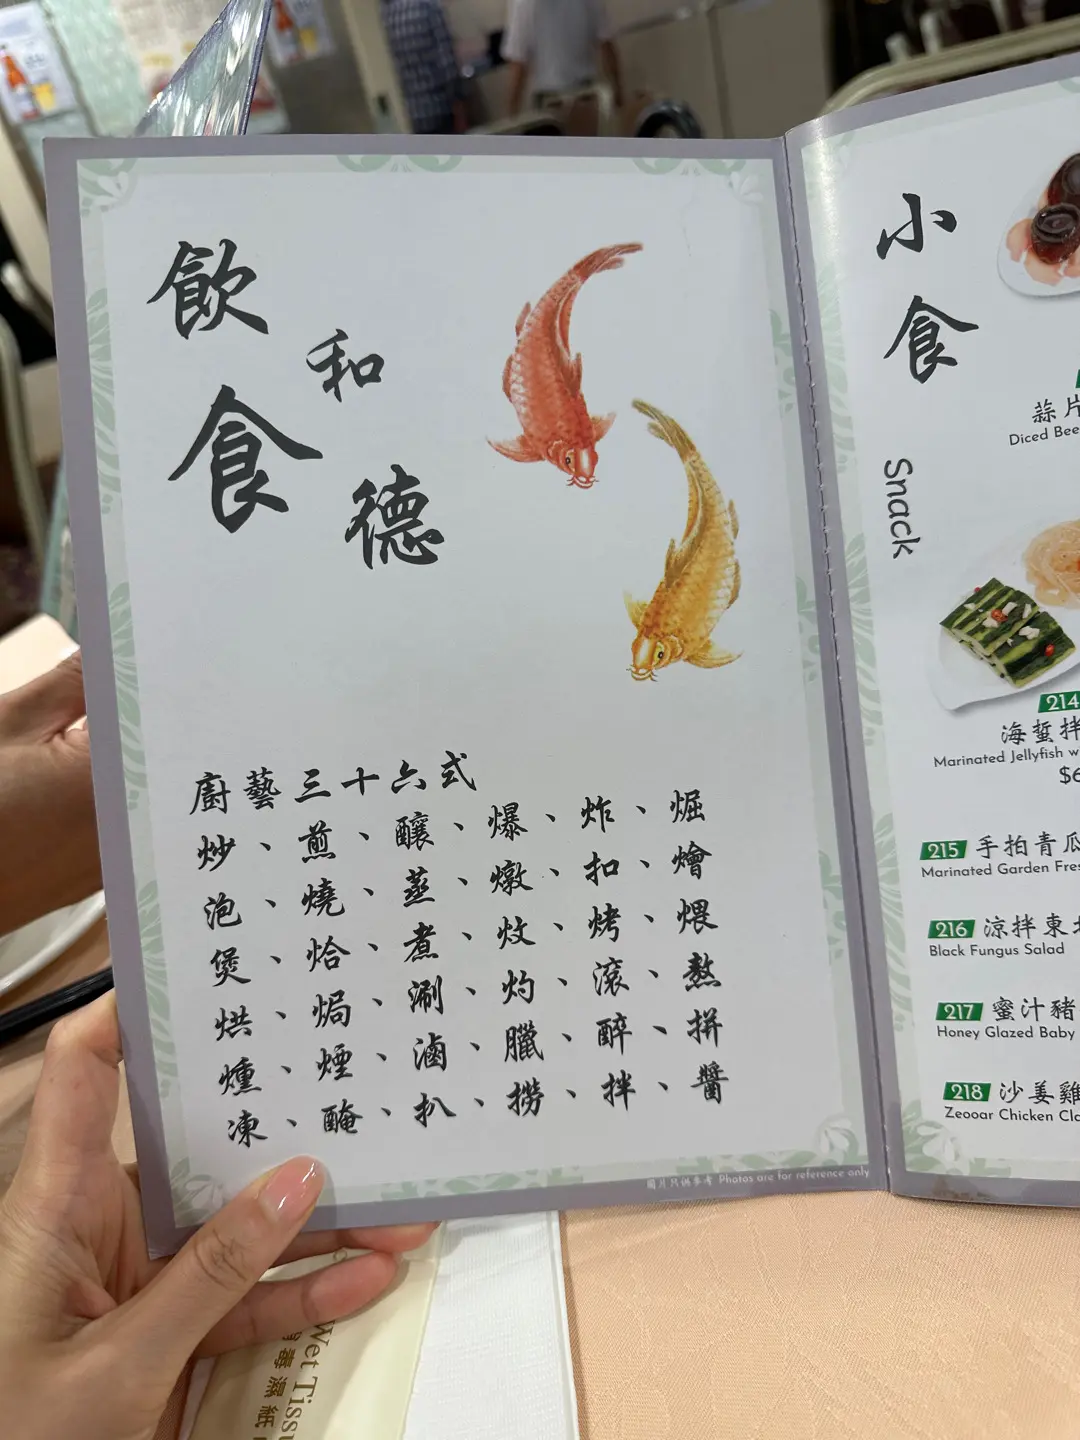 飲和
食德
廚藝三十六式
炒、煎、釀、爆、炸、焗
泡、燒、蒸、燉、扣、燴
煲、烚、煮、炆、烤、煨
烘、焗、涮、灼、滾、熬
燻、煙、滷、臘、醉、拼
凍、醃、扒、撈、拌、醬
圖片只供參考 Photos are for reference only
小食
Snack
蒜片
Diced Bee
214
海蜇拌
Marinated Jellyfish w
$6
215 手拍青瓜
Marinated Garden Fres
216 涼拌東北
Black Fungus Salad
217 蜜汁豬
Honey Glazed Baby
218 沙姜雞
Zeooar Chicken Cla
Wet Tissu
毒濕紙